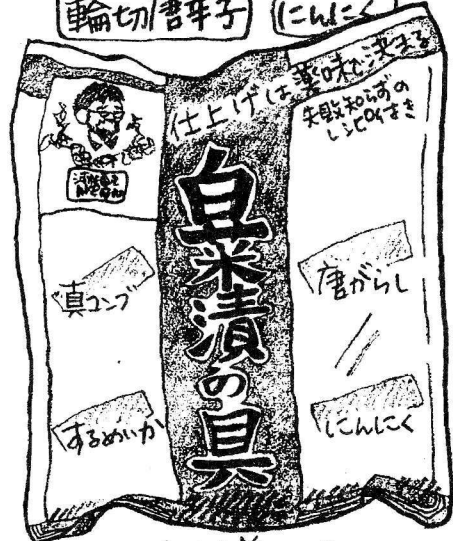 輪切唐辛子
にんにく
仕上げは薬味で決まる
失敗知らずの
レシピ付き
白菜漬の具
真コンブ
唐がらし
するめいか
にんにく